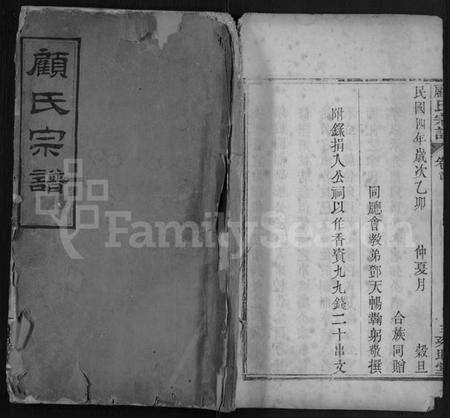 顧氏宗譜
顧氏宗譜 卷首
民國四年歲次乙卯 仲夏月 穀旦
合族同贈
同總會教弟鄧天暢鞠躬敬撰
附錄捐入公祠以作香資九九錢二十串文
FamilySearch